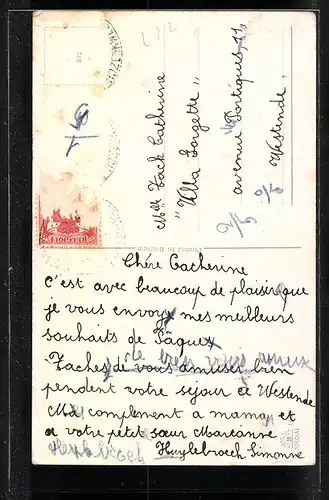 Mlle Zack Catherine
"Villa Lorgette"
avenue Portiques 11
Westende.
Printed in Belgium
Chére Catherine
C'est avec beaucoup de plaisir que
je vous envoye mes meilleurs
souhaits de Pâques
Taches de vous amuser bien
pendent votre sejour a Westende
Mes complement a mama et
a votre petit sœur Marianne
Huylebroeck Simonne